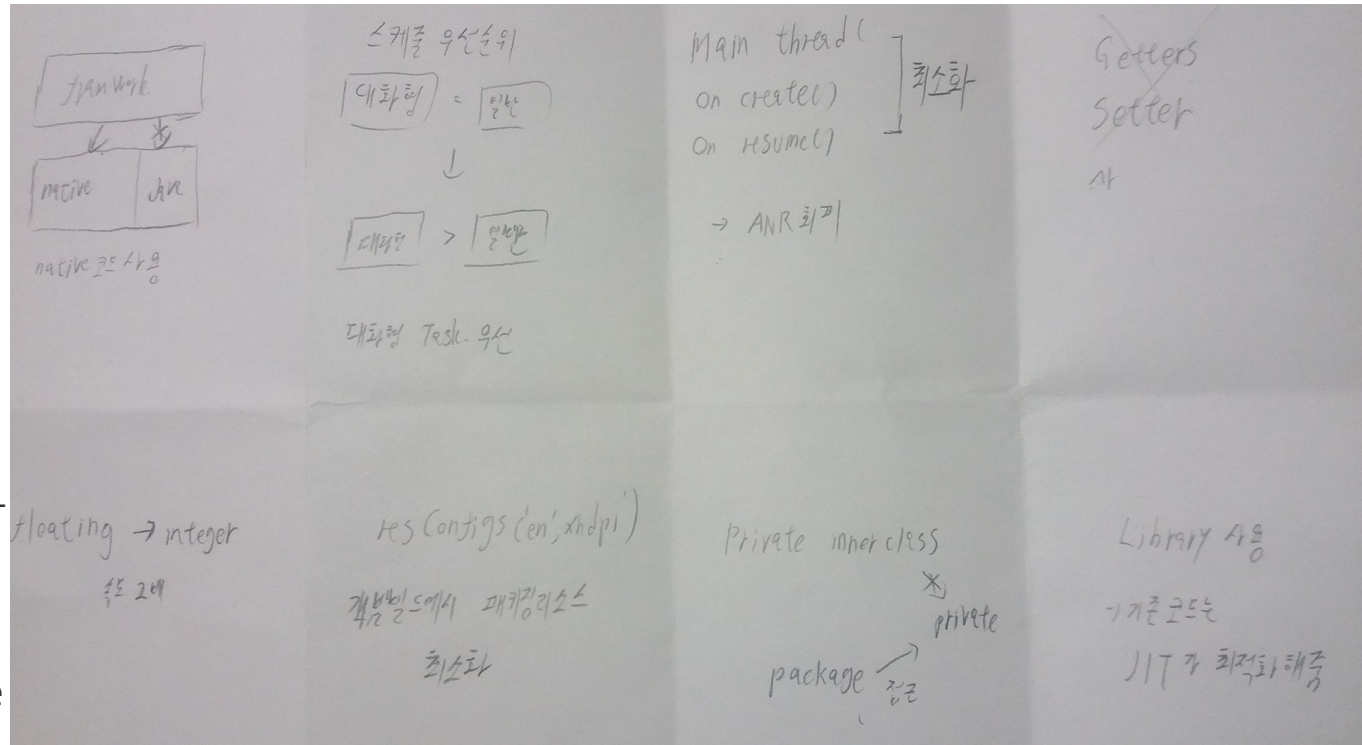 framwork
native
Java
native 코드 사용
스케줄 우선순위
대화형 = 일반
↓
대화형 > 일반
대화형 Task 우선
Main thread(
On create()
On resume()
최소화
→ ANR 회피
Getters
Setter
사
floating → integer
속도 2배
resConfigs('en', xhdpi')
개발빌드에서 패키징리소스
최소화
Private inner class
private
package
접근
Library 사용
기존 코드는
JIT가 최적화해줌